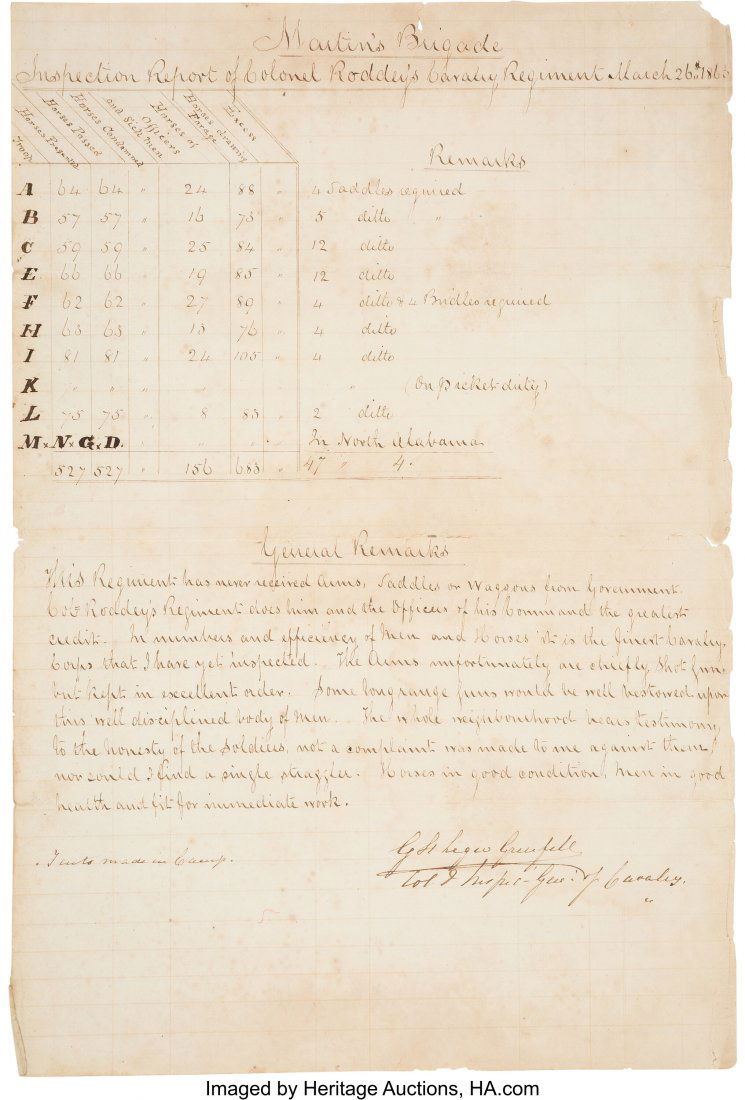 Martin's Brigade
Inspection Report of Colonel Roddey's Cavalry Regiment March 26th 186
Troop Horses Presented Horses Passed Horses Condemned and Sick Men Horses of Officers Horses drawing Forage Excess
Remarks
A 64 64 " 24 88 " 4 Saddles required
B 57 57 " 16 73 " 5 ditto "
C 59 59 " 25 84 " 12 ditto
E 66 66 " 19 85 " 12 ditto
F 62 62 " 27 89 " 4 ditto & 4 Bridles required
H 63 63 " 13 76 " 4 ditto
I 81 81 " 24 105 " 4 ditto
K " " " " " " (On picket duty)
L 75 75 " 8 83 " 2 ditto
M x N x G x D. " " " " In North Alabama
527 527 " 156 683 " 47 " 4.
General Remarks
This Regiment has never received Arms, Saddles or Waggons from Government.
Col. Roddey's Regiment does him and the Officers of his Command the greatest
credit. In numbers and efficiency of Men and Horses it is the finest Cavalry
Corps that I have yet inspected. The Arms unfortunately are chiefly Shot Guns
but kept in excellent order. Some long range guns would be well bestowed upon
this well disciplined body of men. The whole neighbourhood bears testimony
to the honesty of the Soldiers, not a complaint was made to me against them,
nor could I find a single straggler. Horses in good condition, Men in good
health and fit for immediate work.
made in Camp.
G St Leger Grenfell
Col & Inspec- Genl of Cavalry.
Imaged by Heritage Auctions, HA.com